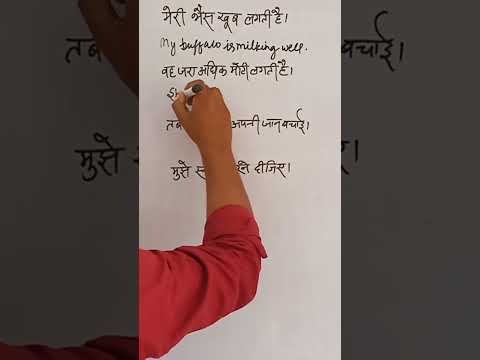 मेरी भैंस खूब लगती है।
My buffalo is milking well.
वह जरा अधिक मोटी लगती है।
अपनी जान बचाई।
मुझे दीजिए।